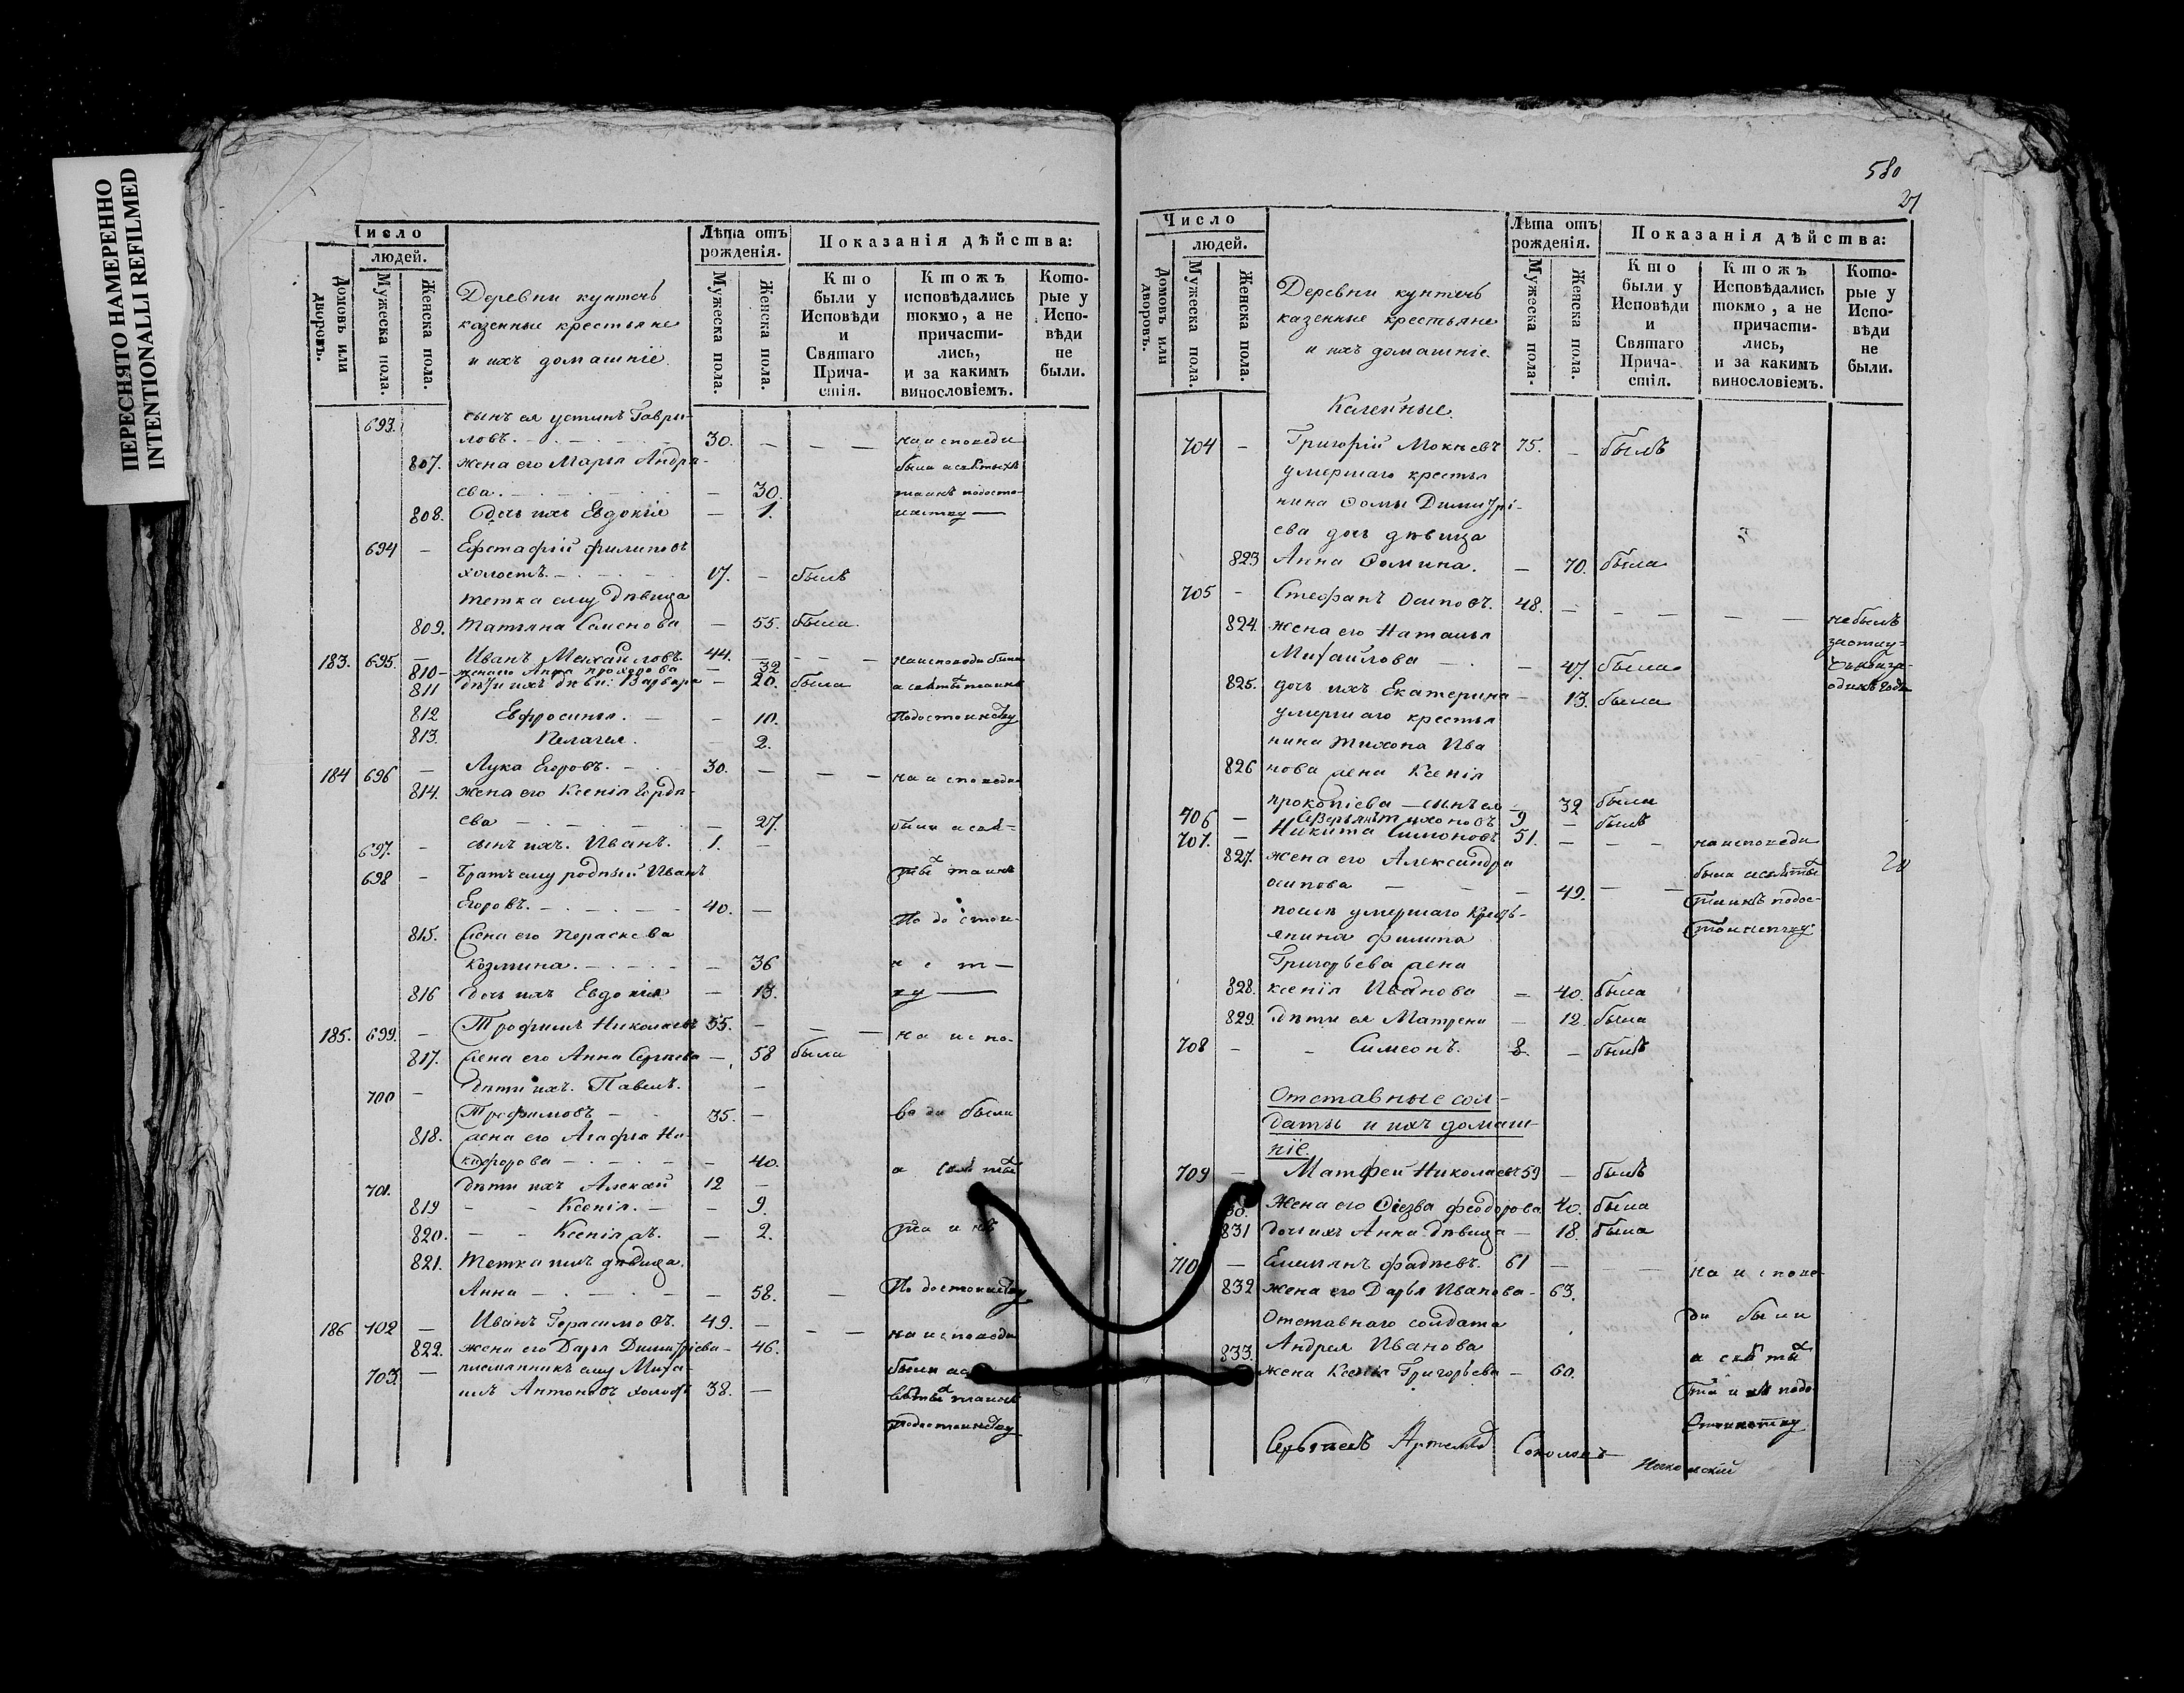 ПЕРЕСНЯТО НАМЕРЕННО
INTENTIONALLI REFILMED
Число
людей.
Домовъ или дворовъ.
Мужеска пола.
Женска пола.
Деревни
казенные крестьяне
и ихъ домашніе.
Лѣта отъ рожденія.
Мужеска пола.
Женска пола.
Показанія дѣйства:
Кто были у Исповѣди и Святаго Причастія.
Ктожъ исповѣдались токмо, а не причастились, и за какимъ винословіемъ.
Которые у Исповѣди не были.
693. сынъ ея устинъ Гаври-
ловъ. 30. — — — на исповеди
807. жена его Марья Андре-
ева. — 30.
808. дочь ихъ Евдокія — 1.
694 — Ефстафій филиповъ
холостъ. 17. — былъ
тетка ему дѣвица
809. татьяна Семенова — 55. была.
183. 695. — Иванъ Михайловъ 44. — — — на исповеди были
810 жена его Анна прохорова 32
811 дѣти ихъ дѣви: Варвара — 20. была
812 Евфросинья. — — 10.
813. Пелагея. — 2.
184 696 — Лука Егоровъ. — 30. — — — на исповеди
814. жена его Ксенія
ева — — 27. были
697. — сынъ ихъ. Иванъ. 1. —
698 — братъ ему родный Иванъ
Егоровъ. 40. —
815. жена его Пераскева
козмина. — 36
816 дочь ихъ Евдокія — 13.
185. 699. — Трофимъ Николаевъ 55. — — — на испо-
817. жена его Анна Сергѣева — 58 была
700 — дѣти ихъ. Павелъ. —
Трофимовъ — 35. — веди были
818. жена его Агафья Ни-
кифорова — — 40.
701. дѣти ихъ Алексѣй 12 —
819 - - Ксенія. — — 9.
820. — - Ксенія — 2.
821. тетка имъ дѣвица.
Анна — — 58. —
186 702 — Иванъ Герасимовъ. 49. — — — на исповеди
822. жена его Дарья Димитріева — 46.
703. — племянникъ ему Миха-
илъ Антоновъ холостъ 38. —
580
21
Число
людей.
Домовъ или дворовъ.
Мужеска пола.
Женска пола.
Деревни
казенные крестьяне
и ихъ домашніе.
Лѣта отъ рожденія.
Мужеска пола.
Женска пола.
Показанія дѣйства:
Кто были у Исповѣди и Святаго Причастія.
Ктожъ Исповѣдались токмо, а не причастились, и за какимъ винословіемъ.
Которые у Исповѣди не были.
Келейные.
704 — Григорій 75. — былъ
умершаго крестья
нина Фомы Димитрі-
ева дочь дѣвица
823 Анна Фомина. — 70. была
705 - Стефанъ Осиповъ. 48. — — — — не былъ
824. жена его Наталья
Михайлова — — 47. была
825. дочь ихъ Екатерина — 13. была
умершаго крестья
нина тихона Ива
826 нова жена Ксенія
прокопіева — сынъ ея 32 была
706 — тихоновъ 9 — былъ
707. — Никита Симоновъ 51. — — - на исповеди
827. жена его Александра
осипова — - — 49. — —
после умершаго кресть-
янина филипа
Григорьева жена
828. ксенія Иванова — 40. была
829. дѣти ея Матрена — 12. была
708 - - Симеонъ. 8. — былъ
Отставные сол-
даты и ихъ домаш-
ніе.
709 — Матфей Николаевъ 59 — былъ
жена его феодорова 40. была
831 дочь ихъ Анна дѣвица — 18. была
710 — Емельянъ фадѣевъ. 61 — — — на испове-
832 жена его Дарья Иванова — 63. ди были
Отставнаго солдата
Андрея Иванова
833. жена Ксенія Григорьева — 60.
Артемій Соколовъ